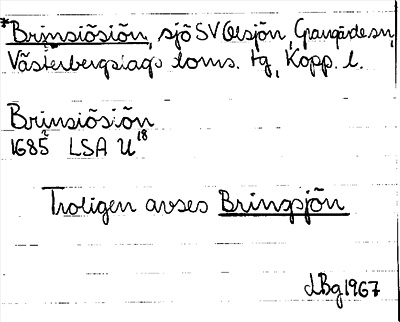 *Brinsiõsiõn, sjõ SV Olsjõn, Grangärde sn,
Västerbergslags doms. tg, Kopp. l.
Brinsiõsiõn
1685 LSA U18
Troligen avses Bringsjõn
LBg 1967